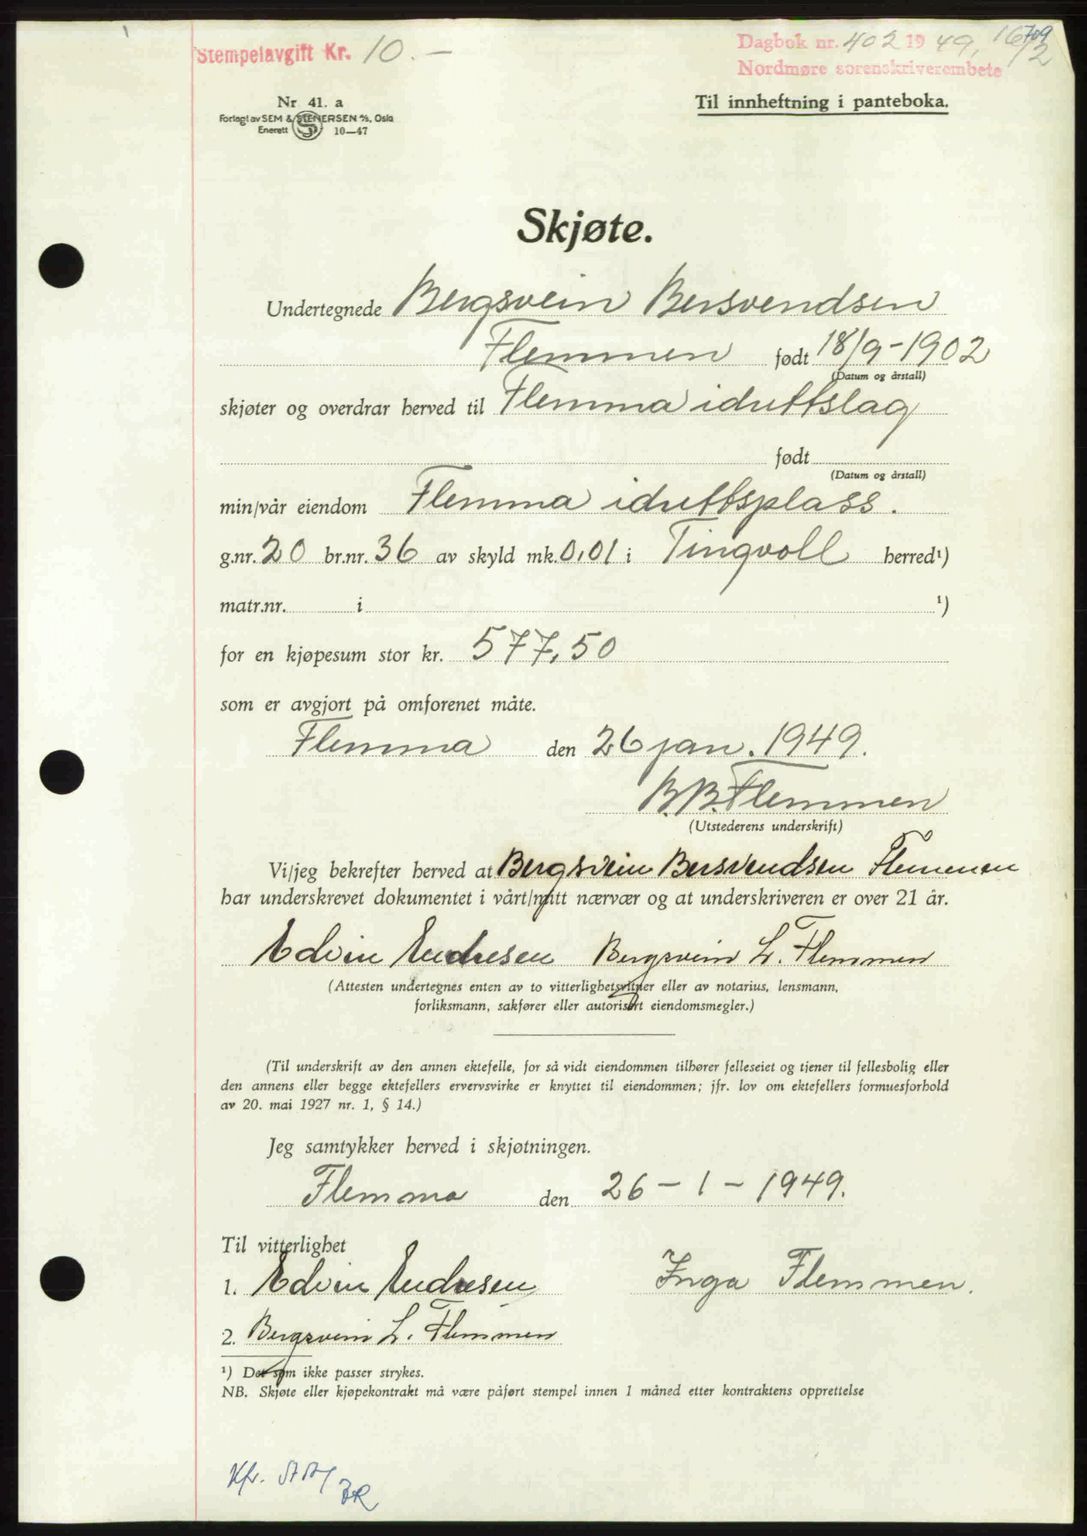 Stempelavgift Kr. 10.-
Dagbok nr. 402 1949, 16/2
709
Nordmøre sorenskriverembete
Nr 41. a
Forlagt av SEM & STENERSEN A/S, Oslo
Enerett 10-47
Til innheftning i panteboka.
Skjøte.
Undertegnede Bergsvein Bersvendsen
Flemmen født 18/9-1902
(Datum og årstall)
skjøter og overdrar herved til Flemma idrettslag
født
(Datum og årstall)
min/vår eiendom Flemma idrettsplass.
g.nr. 20 br.nr. 36 av skyld mk. 0,01 i Tingvoll herred¹)
matr.nr. i ¹)
for en kjøpesum stor kr. 577,50
som er avgjort på omforenet måte.
Flemma den 26 jan. 1949.
B.B. Flemmen
(Utstederens underskrift)
Vi/jeg bekrefter herved at Bergsvein Bersvendsen Flemmen
har underskrevet dokumentet i vårt/mitt nærvær og at underskriveren er over 21 år.
Edvin Endresen Bergsvein L. Flemmen
(Attesten undertegnes enten av to vitterlighetsvitner eller av notarius, lensmann,
forliksmann, sakfører eller autorisert eiendomsmegler.)
(Til underskrift av den annen ektefelle, for så vidt eiendommen tilhører felleseiet og tjener til fellesbolig eller
den annens eller begge ektefellers ervervsvirke er knyttet til eiendommen; jfr. lov om ektefellers formuesforhold
av 20. mai 1927 nr. 1, § 14.)
Jeg samtykker herved i skjøtningen.
Flemma den 26-1-1949.
Til vitterlighet
1. Edvin Endresen Inga Flemmen.
2. Bergsvein L. Flemmen
¹) Det som ikke passer strykes.
NB. Skjøte eller kjøpekontrakt må være påført stempel innen 1 måned etter kontraktens opprettelse
Kfr.